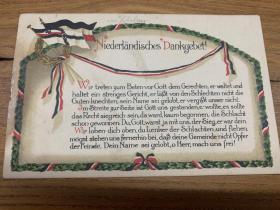 Niederländisches Dankgebet!
Wir treten zum Beten vor Gott dem Gerechten, er waltet und
haltet ein strenges Gericht, er läßt von den Schlechten nicht die
Guten knechten, sein Name sei gelobt, er vergißt unser nicht.
Im Streite zur Seite ist Gott uns gestanden, er wollte, es sollte
das Recht siegreich sein, da ward, kaum begonnen, die Schlacht
schon gewonnen. Du, Gott, warst ja mit uns, der Sieg, er war dein.
Wir loben dich oben, du Lenker der Schlachten, und flehen,
mögst stehen uns fernerhin bei, daß deine Gemeinde nicht Opfer
der Feinde, Dein Name sei gelobt, o Herr, mach uns frei!